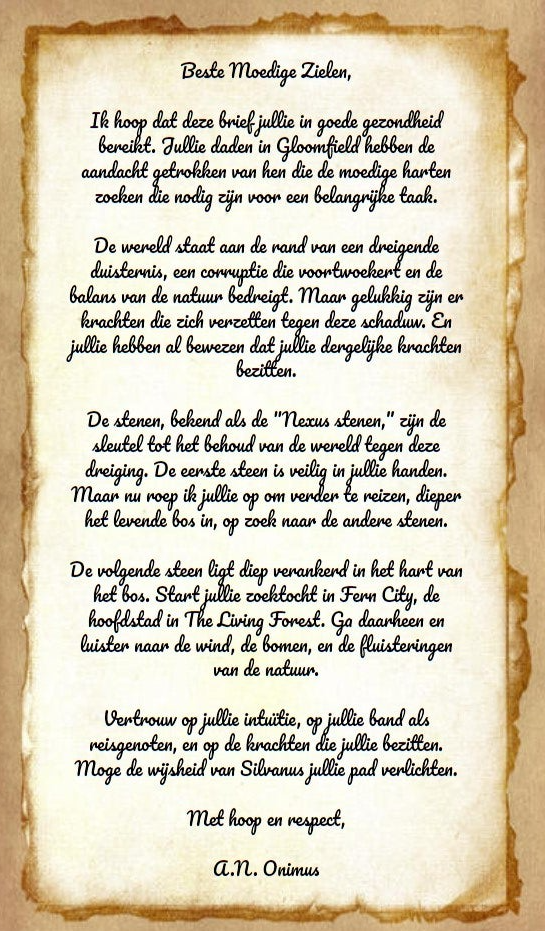 Beste Moedige Zielen,
Ik hoop dat deze brief jullie in goede gezondheid
bereikt. Jullie daden in Gloomfield hebben de
aandacht getrokken van hen die de moedige harten
zoeken die nodig zijn voor een belangrijke taak.
De wereld staat aan de rand van een dreigende
duisternis, een corruptie die voortwoekert en de
balans van de natuur bedreigt. Maar gelukkig zijn er
krachten die zich verzetten tegen deze schaduw. En
jullie hebben al bewezen dat jullie dergelijke krachten
bezitten.
De stenen, bekend als de "Nexus stenen," zijn de
sleutel tot het behoud van de wereld tegen deze
dreiging. De eerste steen is veilig in jullie handen.
Maar nu roep ik jullie op om verder te reizen, dieper
het levende bos in, op zoek naar de andere stenen.
De volgende steen ligt diep verankerd in het hart van
het bos. Start jullie zoektocht in Fern City, de
hoofdstad in The Living Forest. Ga daarheen en
luister naar de wind, de bomen, en de fluisteringen
van de natuur.
Vertrouw op jullie intuïtie, op jullie band als
reisgenoten, en op de krachten die jullie bezitten.
Moge de wijsheid van Silvanus jullie pad verlichten.
Met hoop en respect,
A.N. Onimus